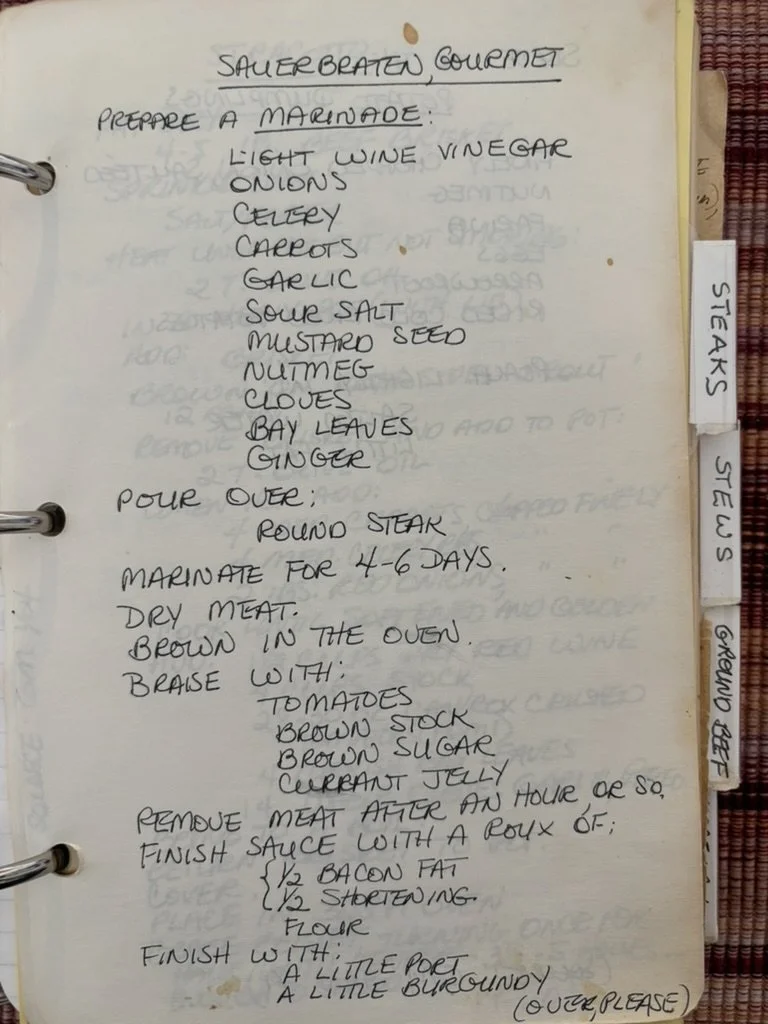 SAUERBRATEN, GOURMET
PREPARE A MARINADE:
LIGHT WINE VINEGAR
ONIONS
CELERY
CARROTS
GARLIC
SOUR SALT
MUSTARD SEED
NUTMEG
CLOVES
BAY LEAVES
GINGER
POUR OVER:
ROUND STEAK
MARINATE FOR 4-6 DAYS.
DRY MEAT.
BROWN IN THE OVEN.
BRAISE WITH:
TOMATOES
BROWN STOCK
BROWN SUGAR
CURRANT JELLY
REMOVE MEAT AFTER AN HOUR, OR SO.
FINISH SAUCE WITH A ROUX OF:
{ 1/2 BACON FAT
{ 1/2 SHORTENING
FLOUR
FINISH WITH:
A LITTLE PORT
A LITTLE BURGUNDY
(OVER, PLEASE)
STEAKS
STEWS
GROUND BEEF